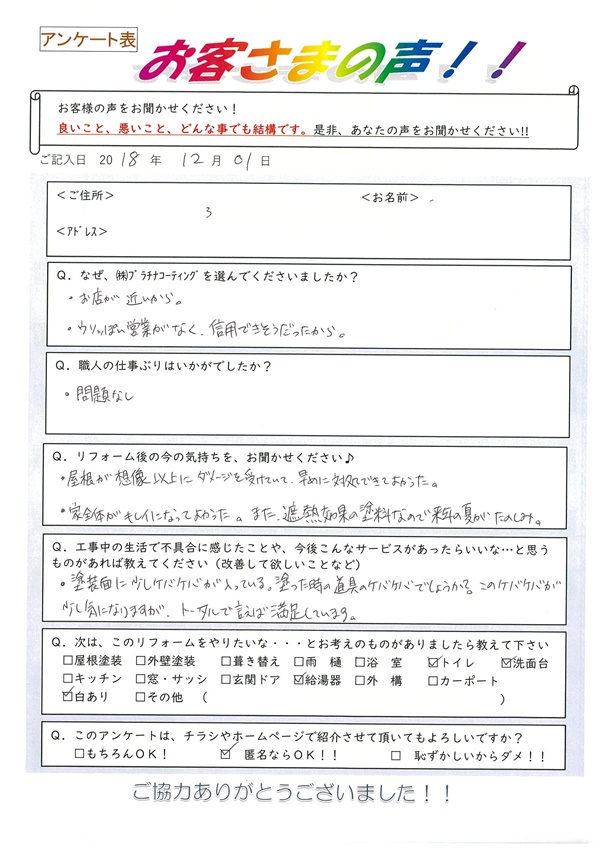 アンケート表
お客さまの声！！
お客様の声をお聞かせください！
良いこと、悪いこと、どんな事でも結構です。是非、あなたの声をお聞かせください!!
ご記入日 2018 年 12 月 01 日
＜ご住所＞ ＜お名前＞
3
＜ｱﾄﾞﾚｽ＞
Q．なぜ、㈱ﾌﾟﾗﾁﾅｺｰﾃｨﾝｸﾞを選んでくださいましたか？
・お店が近いから。
・ウソっぽい営業がなく、信用できそうだったから。
Q．職人の仕事ぶりはいかがでしたか？
・問題なし
Q．リフォーム後の今の気持ちを、お聞かせください♪
・屋根が想像以上にダメージを受けていて、早めに対処できてよかった。
・家全体がキレイになってよかった。また、遮熱効果の塗料なので来年の夏がたのしみ。
Q．工事中の生活で不具合に感じたことや、今後こんなサービスがあったらいいな…と思う
ものがあれば教えてください（改善して欲しいことなど）
・塗装面に少しケバケバが入っている。塗った時の道具のケバケバでしょうか？このケバケバが
少し気になりますが、トータルで言えば満足しています。
Q．次は、このリフォームをやりたいな・・・とお考えのものがありましたら教えて下さい
□屋根塗装 □外壁塗装 □葺き替え □雨 樋 □浴 室 ☑トイレ ☑洗面台
□キッチン □窓・サッシ □玄関ドア ☑給湯器 □外 構 □カーポート
☑白あり □その他 （ ）
Q．このアンケートは、チラシやホームページで紹介させて頂いてもよろしいですか？
□もちろんOK！ ☑ 匿名ならOK！！ □ 恥ずかしいからダメ！！
ご協力ありがとうございました！！